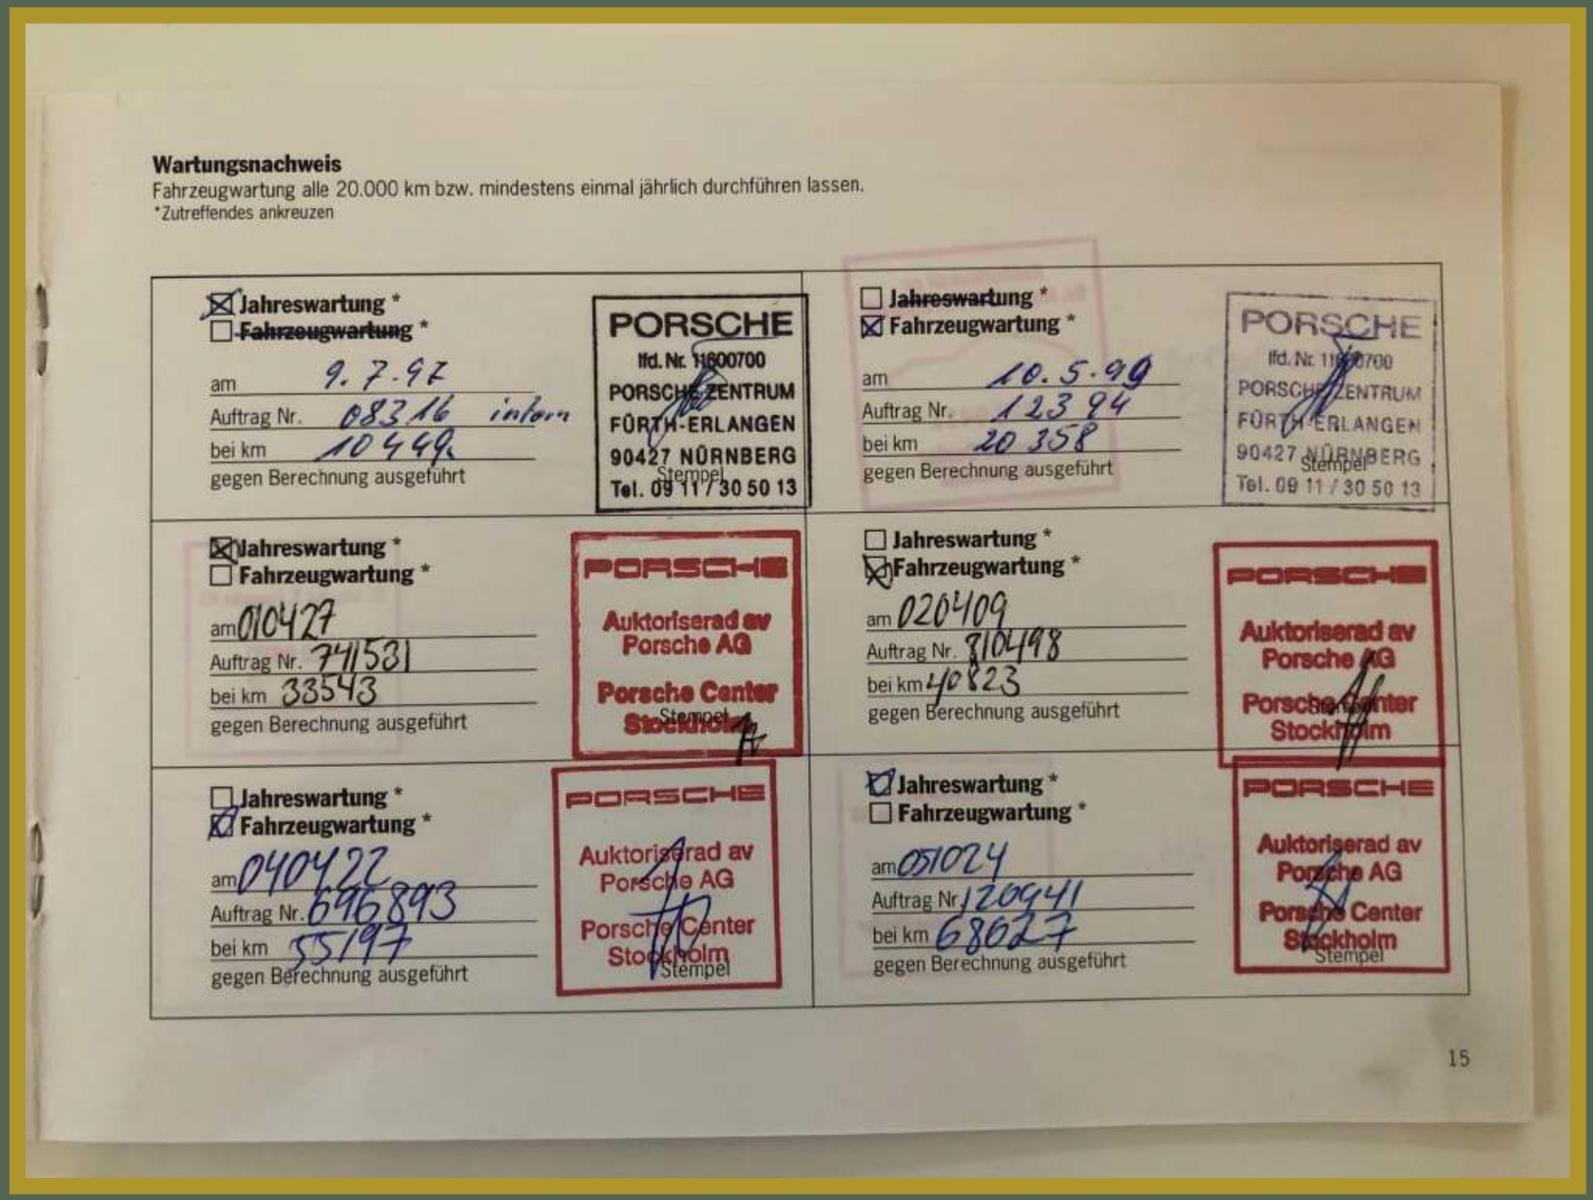 Wartungsnachweis
Fahrzeugwartung alle 20.000 km bzw. mindestens einmal jährlich durchführen lassen.
*Zutreffendes ankreuzen
Jahreswartung *
Fahrzeugwartung *
am 9.7.97
Auftrag Nr. 08316 intern
bei km 10449
gegen Berechnung ausgeführt
PORSCHE
lfd. Nr. 11600700
PORSCHE ZENTRUM
FÜRTH-ERLANGEN
90427 NÜRNBERG
Stempel
Tel. 09 11 / 30 50 13
Jahreswartung *
Fahrzeugwartung *
am 10.5.99
Auftrag Nr. 12394
bei km 20358
gegen Berechnung ausgeführt
PORSCHE
lfd. Nr. 11600700
PORSCHE ZENTRUM
FÜRTH-ERLANGEN
90427 NÜRNBERG
Stempel
Tel. 09 11 / 30 50 13
Jahreswartung *
Fahrzeugwartung *
am 010427
Auftrag Nr. 741531
bei km 33543
gegen Berechnung ausgeführt
PORSCHE
Auktoriserad av
Porsche AG
Porsche Center
Stempel
Stockholm
Jahreswartung *
Fahrzeugwartung *
am 020409
Auftrag Nr. 810498
bei km 40823
gegen Berechnung ausgeführt
PORSCHE
Auktoriserad av
Porsche AG
Porsche Center
Stockholm
Jahreswartung *
Fahrzeugwartung *
am 040422
Auftrag Nr. 696893
bei km 55197
gegen Berechnung ausgeführt
PORSCHE
Auktoriserad av
Porsche AG
Porsche Center
Stockholm
Stempel
Jahreswartung *
Fahrzeugwartung *
am 051024
Auftrag Nr. 120941
bei km 68627
gegen Berechnung ausgeführt
PORSCHE
Auktoriserad av
Porsche AG
Porsche Center
Stockholm
Stempel
15